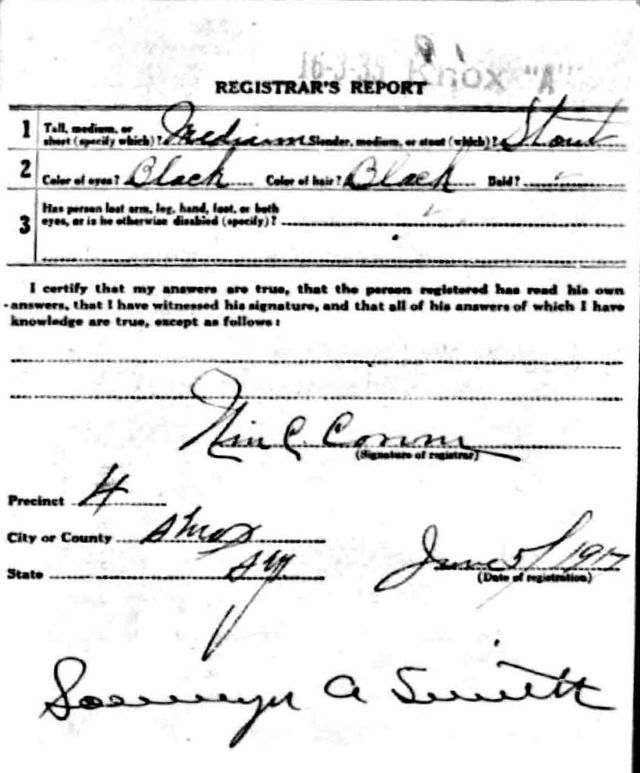 REGISTRAR'S REPORT
1 Tall, medium, or short (specify which)? Medium Slender, medium, or stout (which)? Stout
2 Color of eyes? Black Color of hair? Black Bald?
3 Has person lost arm, leg, hand, foot, or both eyes, or is he otherwise disabled (specify)?
I certify that my answers are true, that the person registered has read his own
answers, that I have witnessed his signature, and that all of his answers of which I have
knowledge are true, except as follows:
(Signature of registrar)
Precinct 4
City or County Knox
State Ky
June 5/1917
(Date of registration)
A Smith